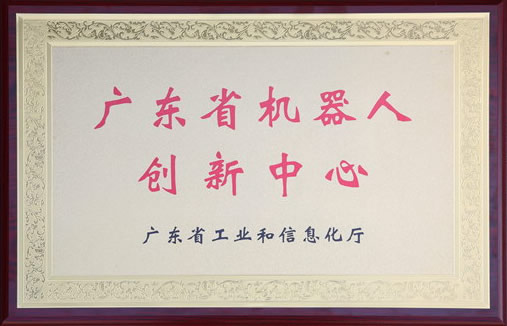 广东省机器人
创新中心
广东省工业和信息化厅